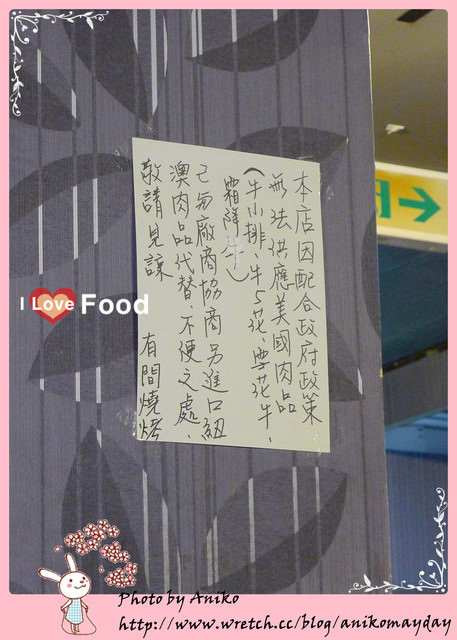 本店因配合政府政策
無法供應美國肉品
(牛小排、牛5花、雪花牛、
霜降牛)
已與廠商協商另進口紐
澳肉品代替,不便之處、
敬請見諒 有間燒烤
I Love Food
Photo by Aniko
http://www.wretch.cc/blog/anikomayday